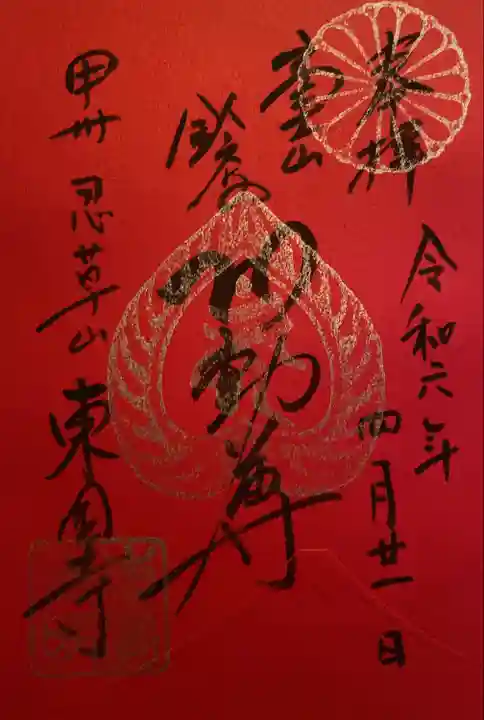 奉拝
令和六年
四月廿一日
不動尊
甲州 忍草山 東圓寺